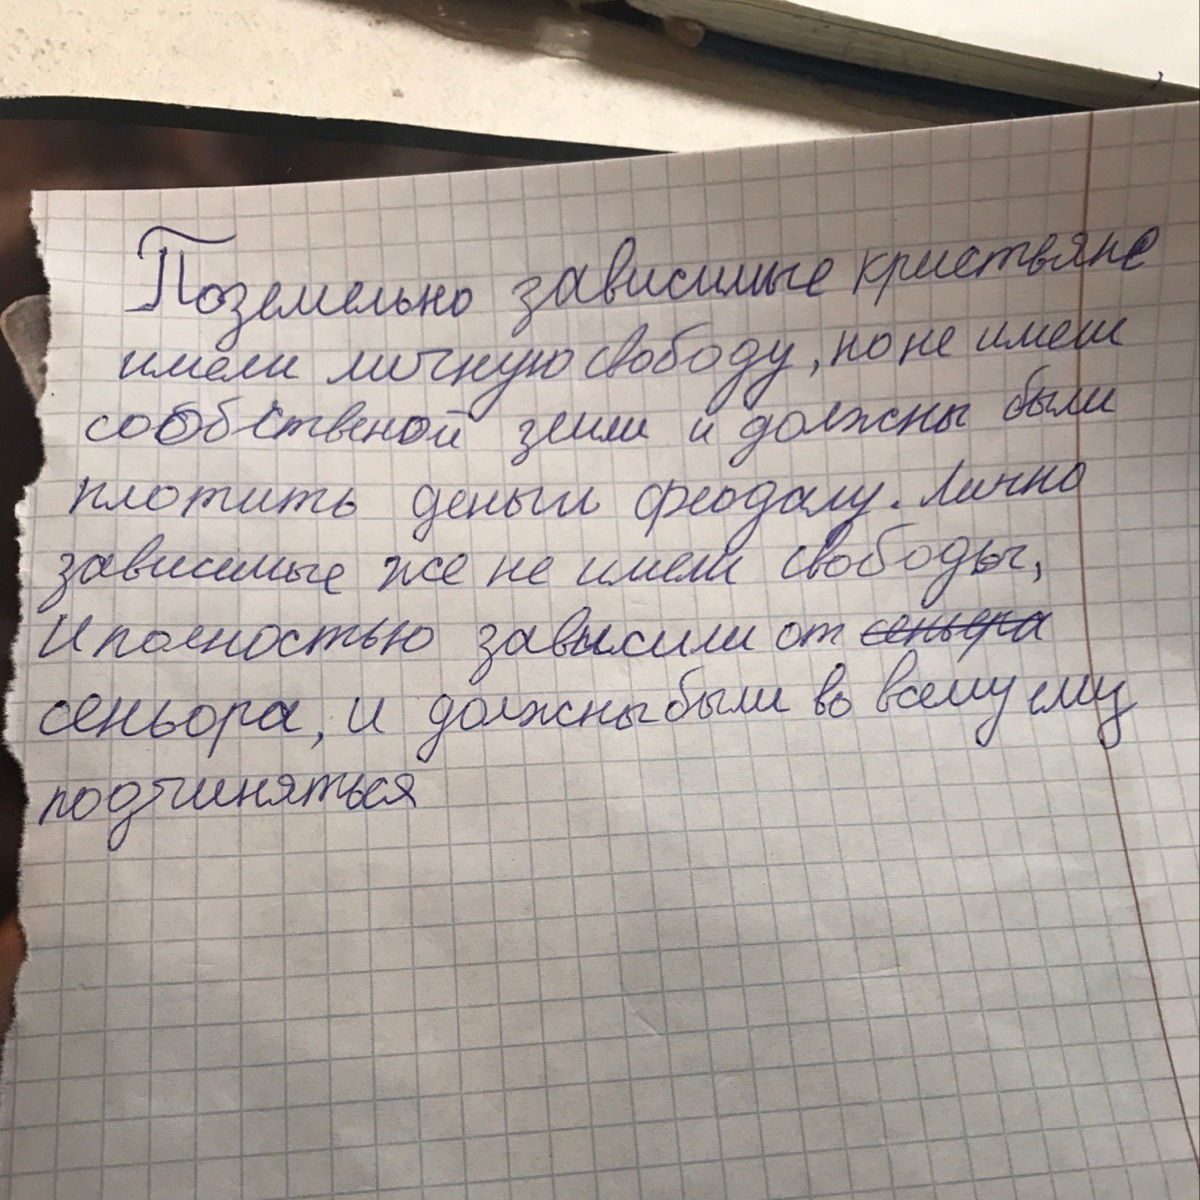 Поземельно зависимые кристьяне
имели личную свободу, но не имели
собственой земли и должны были
плотить деньги феодалу. Лично
зависимые же не имели свободы,
И полностью зависили от сеньера
сеньора, и должны были во всему ему
подчиняться